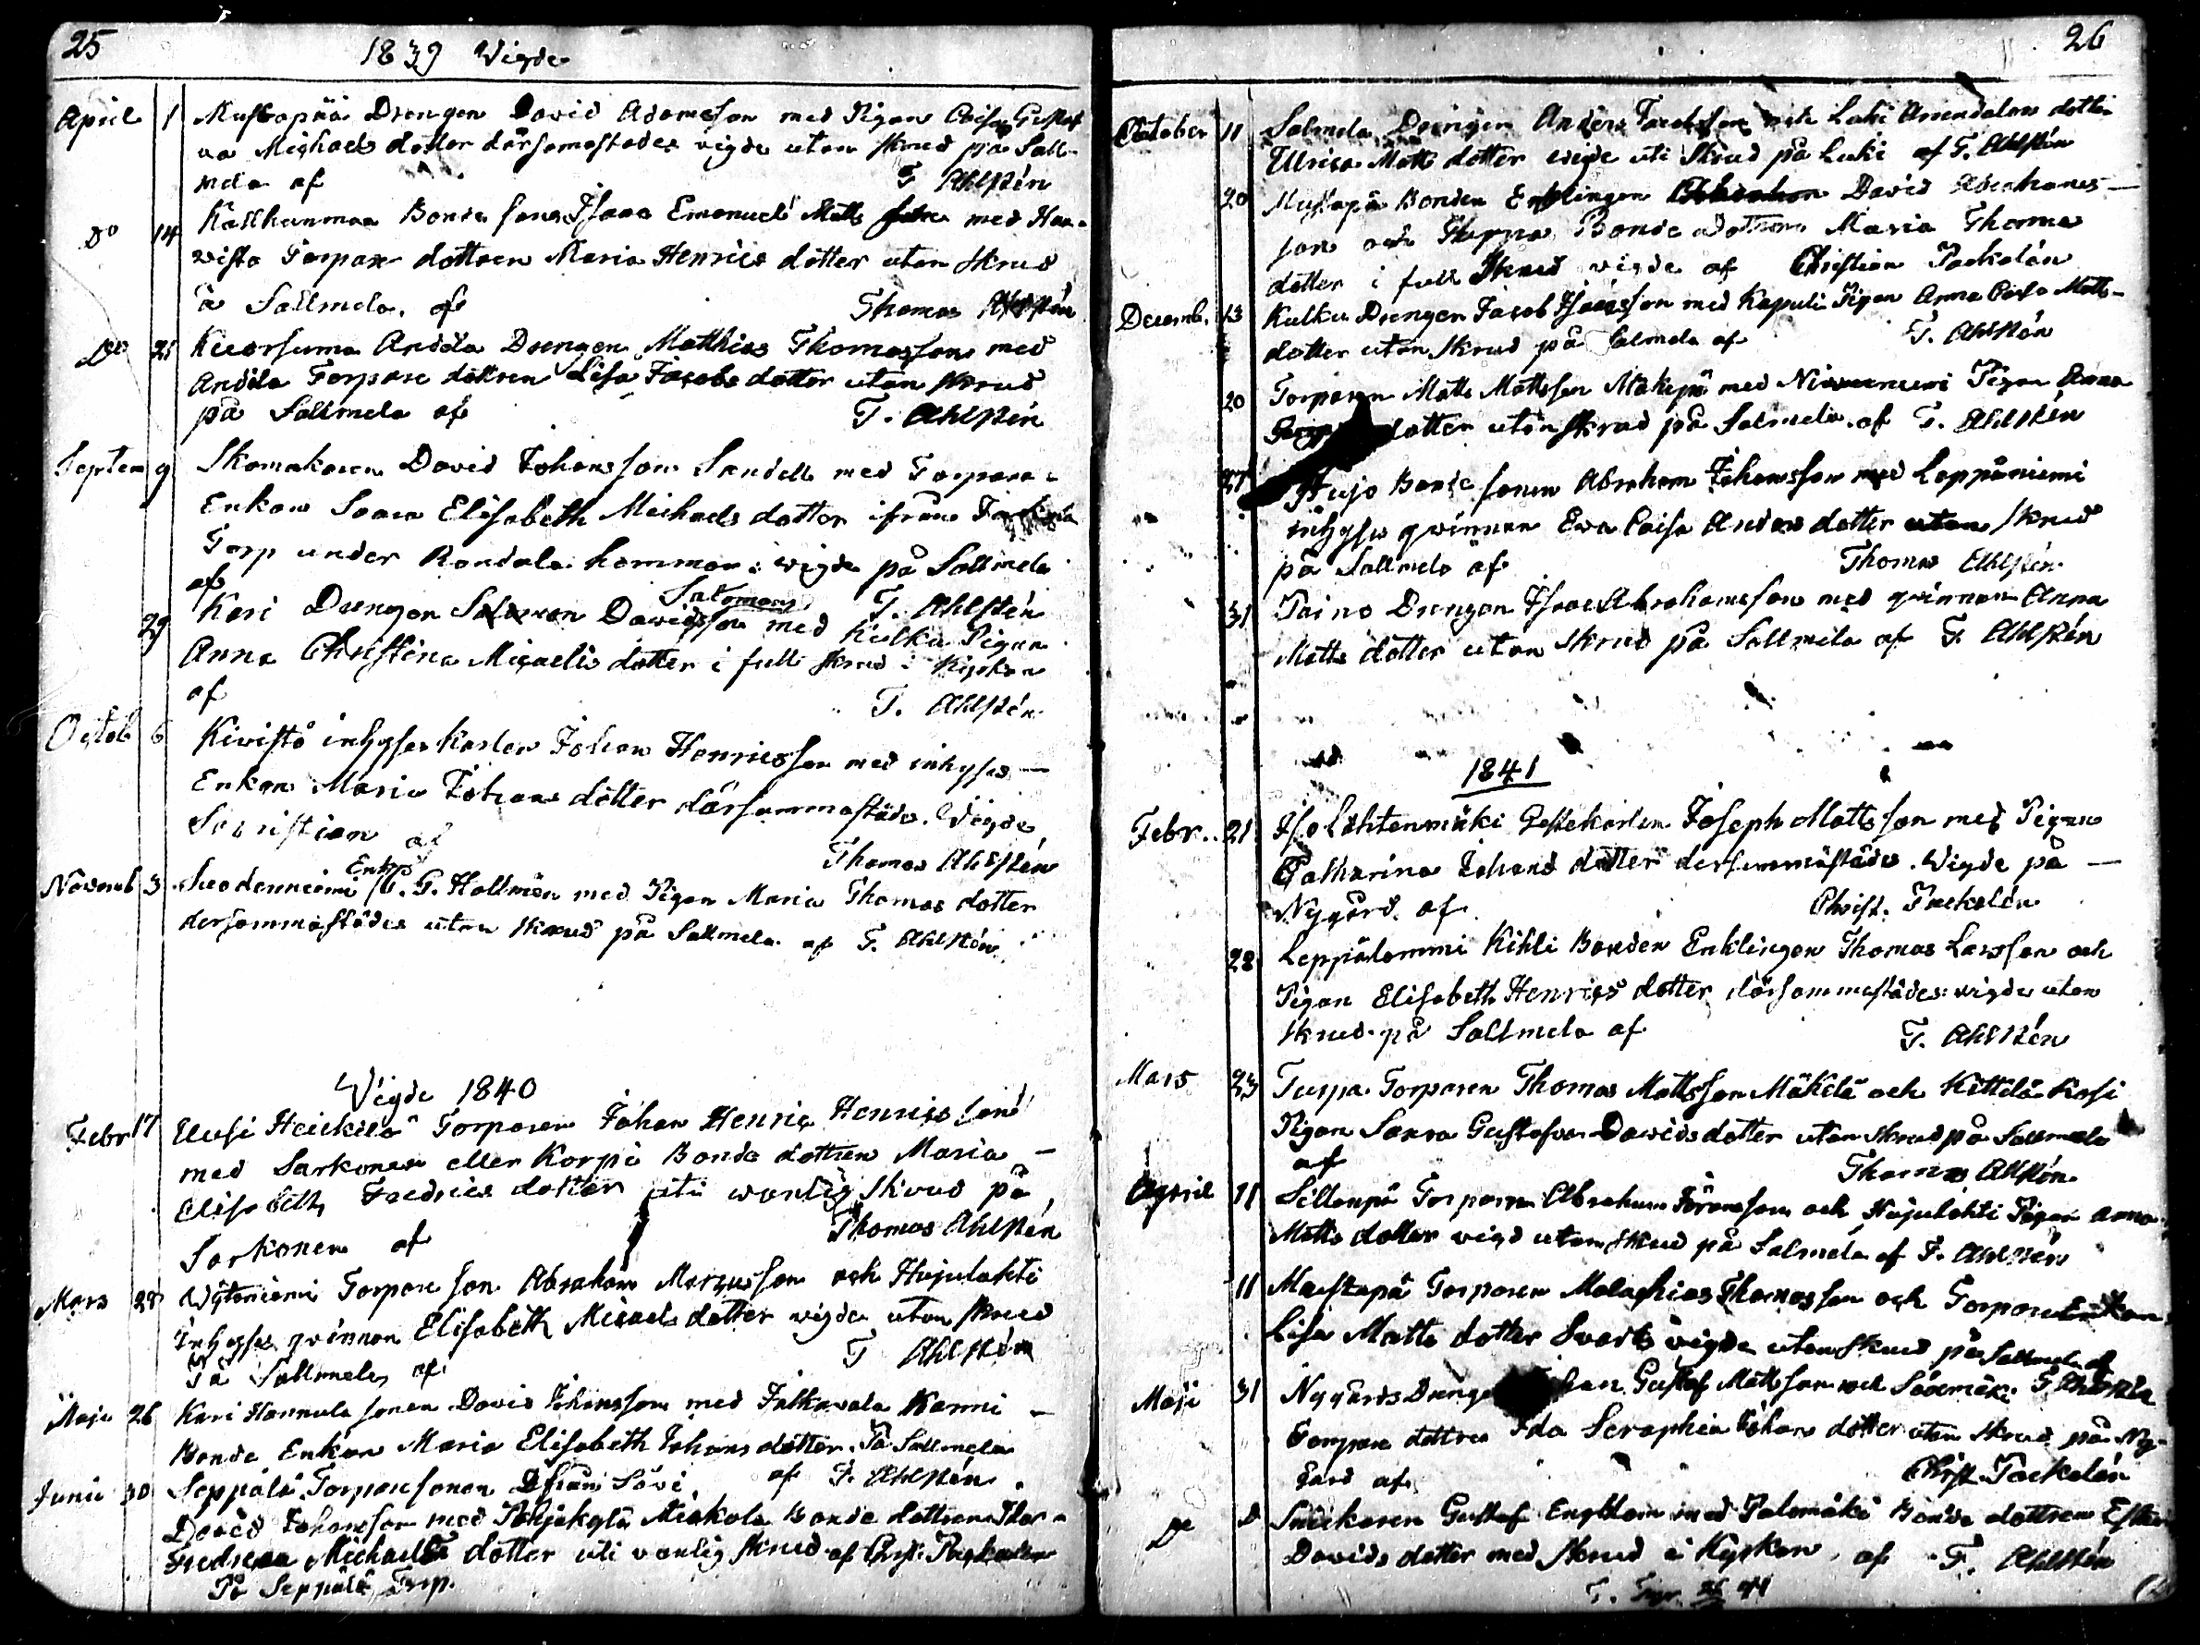 25
1839 Vigde
April 1 Mustapää Drengen David Adamsson med Pigan Caisa Gustaf
va Michaels dotter därsamastedes vigde utan skrud på Sall-
mela af T Ahlstén
Do 14 Kallhanmaa Bonde sonen Isaac Emanuel Matts med Han-
visto Torpare dottren Maria Henrics dotter utan skrud
å Sallmela. af Thomas Ahlstén
Do 21 Anddla Drengen Matthias Thomasson med
Anddla Torpare dottren Lisa Jacobs dotter utan skrud
på Sallmela af T. Ahlstén
Septem 9 Skomakaren David Johansson Sandell med Torpare-
Enkan Elisabeth Michaels dotter ifrån
Torp under Randala hemman: vigde på Sallmela
af T. Ahlstén
29 Kari Drengen Salomon Davidsson med Kulku Pigan
Salomons
Anna Christina Micaels dotter i full skrud i Kyrkan
af T. Ahlstén
Octob 6 Kivistö inhyses Karlen Johan Henricsson med inhyses —
Enkan Maria Johans dotter därsammastäds. Vigde
Sacristian af Thomas Ahlstén
Novemb 3 Enkl C. G. Hallmén med Pigan Maria Thomas dotter
dersammastädes utan skrud på Sallmela af T. Ahlstén
Vigde 1840
Febr 17 Uusi Heickilä Torparen Johan Henric Henrics son
med Sarkonen eller Korpi Bonde dottren Maria —
Elisabeth Fredrics dotter uti wanlig skrud på
Sarkonen af Thomas Ahlstén
Mars 28 Torpare son Abraham Marcusson och Hujulahti
Inhyses qvinnan Elisabeth Micaels dotter vigde utan skrud
På Sallmela af T Ahlstén
Maji 26 Kari Hannula sonen David Johansson med Jalkavala Kanni —
Bonde Enkan Maria Elisabeth Johans dotter. På Sallmela
af T. Ahlstén
Junii 30 Seppälä Torparesonen Sävi,
David Johansson med Pohjakylä Mickola Bonde dottren
Fredrica Michaels dotter uti vanlig skrud af Christ. Packalén
På Seppälä Torp.
26
October 11 Salmela Drengen Anders och Laki
Ulrica Matts dotter vigde uti skrud på Laki af T. Ahlstén
20 Mustapä Bonden Enklingen David Abrahams-
son och Bonde dottren Maria Thomas
dotter i full skrud vigde af Christian Packalén
Decemb. 13 Kulku Drengen Jacob Isacsson med Kapuli Pigan Anna Caisa Matts-
dotter utan skrud på Salmela af T. Ahlstén
20 Torparen Matts Mattsson Mäkipä med Niemenniemi Pigan Anna
dotter utan skrud på Salmela. af T. Ahlstén
27 Hujo Bonde sonen Abraham Johansson med Leppäniemi
inhyses qvinnan Eva Caisa Anders dotter utan skrud
på Sallmela af Thomas Ahlstén
31 Paino Drengen Isaac Abrahamsson med qvinnan Anna
Matts dotter utan skrud på Sallmela af T. Ahlstén
1841
Febr. 21 Iso Lähtenmäki Gästekarlen Joseph Mattsson med Pigan
Catharina Johans dotter dersammastädes. Vigde på —
Nygård. af Christ. Packalén
28 Leppälammi Kihli Bonden Enklingen Thomas Larsson och
Pigan Elisabeth Henrics dotter därsammastädes: vigde utan
skrud på Sallmela af T. Ahlstén
Mars 23 Turpa Torparen Thomas Mattsson Mäkilä och Kittilä Kasi
Pigan Saara Gustafva Davidsdotter utan skrud på Sallmela
af Thomas Ahlstén
April 11 Sillanpä Torparen Abraham Göransson och Hujulahti Pigan Anna
Matts dotter vigd utan skrud på Salmela af T. Ahlstén
11 Mustapä Torparen Malachias Thomasson och Torpare Enkan
Lisa Matts dotter Svarts vigde utan skrud på Sallmela af
T. Ahlstén
Maji 31 Nygårds Gustaf Mattsson och
Torpare dottren Ida Seraphia Johans dotter utan skrud på Ny-
gård af Christ. Packalén
Do D Snickaren Gustaf Engblom med Palomäki Bonde dottren Ester
Davids dotter med skrud i Kyrkan. af T. Ahlstén